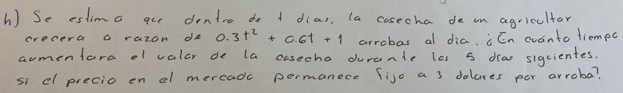 h) Se estima que dentro de t dias, la cosecha de un agricultor
crecera a razon de 0.3t² + 0.6t + 1 arrobas al dia. ¿En cuánto tiempo
aumentara el valor de la cosecha durante los 5 dias sigcientes.
si el precio en el mercado permanece fijo a 3 dolares por arroba?